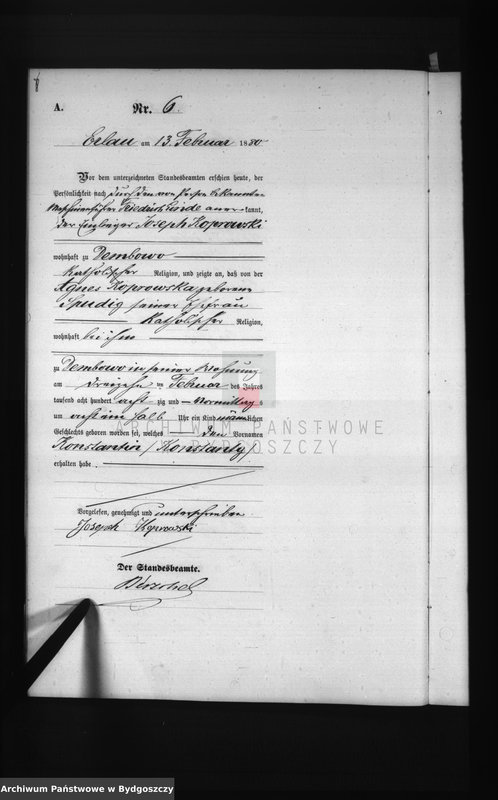 A.
Nr. 6.
Erlau am 13. Februar 1880
Vor dem unterzeichneten Standesbeamten erschien heute, der
Persönlichkeit nach durch den von Person bekannten
Friedrich Linde aner- kannt,
der Einlieger Joseph Koprowski
wohnhaft zu Dembowo
katholischer Religion, und zeigte an, daß von der
Agnes Koprowska geborene
seiner Ehefrau
katholischer Religion,
wohnhaft bei ihm
zu Dembowo in seiner Wohnung
am dreizehn ten Februar des Jahres
tausend acht hundert acht zig und Vormittag s
um acht ein halb Uhr ein Kind männlichen
Geschlechts geboren worden sei, welches den Vornamen
Konstantin /Konstanty/
erhalten habe.
Vorgelesen, genehmigt und unterschrieben
Joseph Koprowski
Der Standesbeamte.
ARCHIWUM PAŃSTWOWE
W BYDGOSZCZY
Archiwum Państwowe w Bydgoszczy